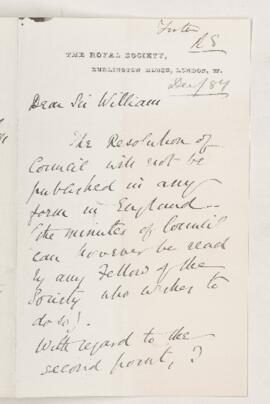 Foster
R S
THE ROYAL SOCIETY,
BURLINGTON HOUSE, LONDON, W.
Dec/84
Dear Sir William
The Resolution of
Council will not be
published in any
form in England -
(the minutes of Council
can however be read
by any Fellow of the
Society who wishes to
do so).
With regard to the
second point, I